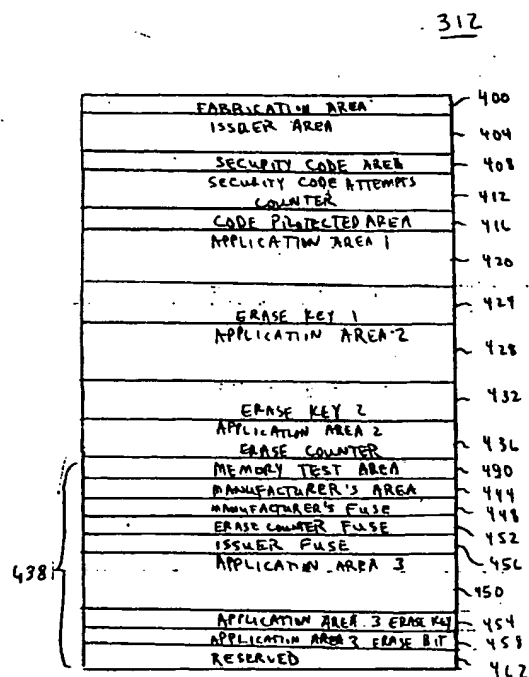 312
FABRICATION AREA 400
ISSUER AREA 404
SECURITY CODE AREA 408
SECURITY CODE ATTEMPTS
COUNTER 412
CODE PROTECTED AREA 416
APPLICATION AREA 1 420
424
ERASE KEY 1
APPLICATION AREA 2 428
432
ERASE KEY 2
APPLICATION AREA 2 436
ERASE COUNTER
MEMORY TEST AREA 440
MANUFACTURER'S AREA 444
MANUFACTURER'S FUSE 448
ERASE COUNTER FUSE 452
ISSUER FUSE 456
APPLICATION AREA 3
438
450
APPLICATION AREA 3 ERASE KEY 454
APPLICATION AREA 3 ERASE BIT 458
RESERVED 462